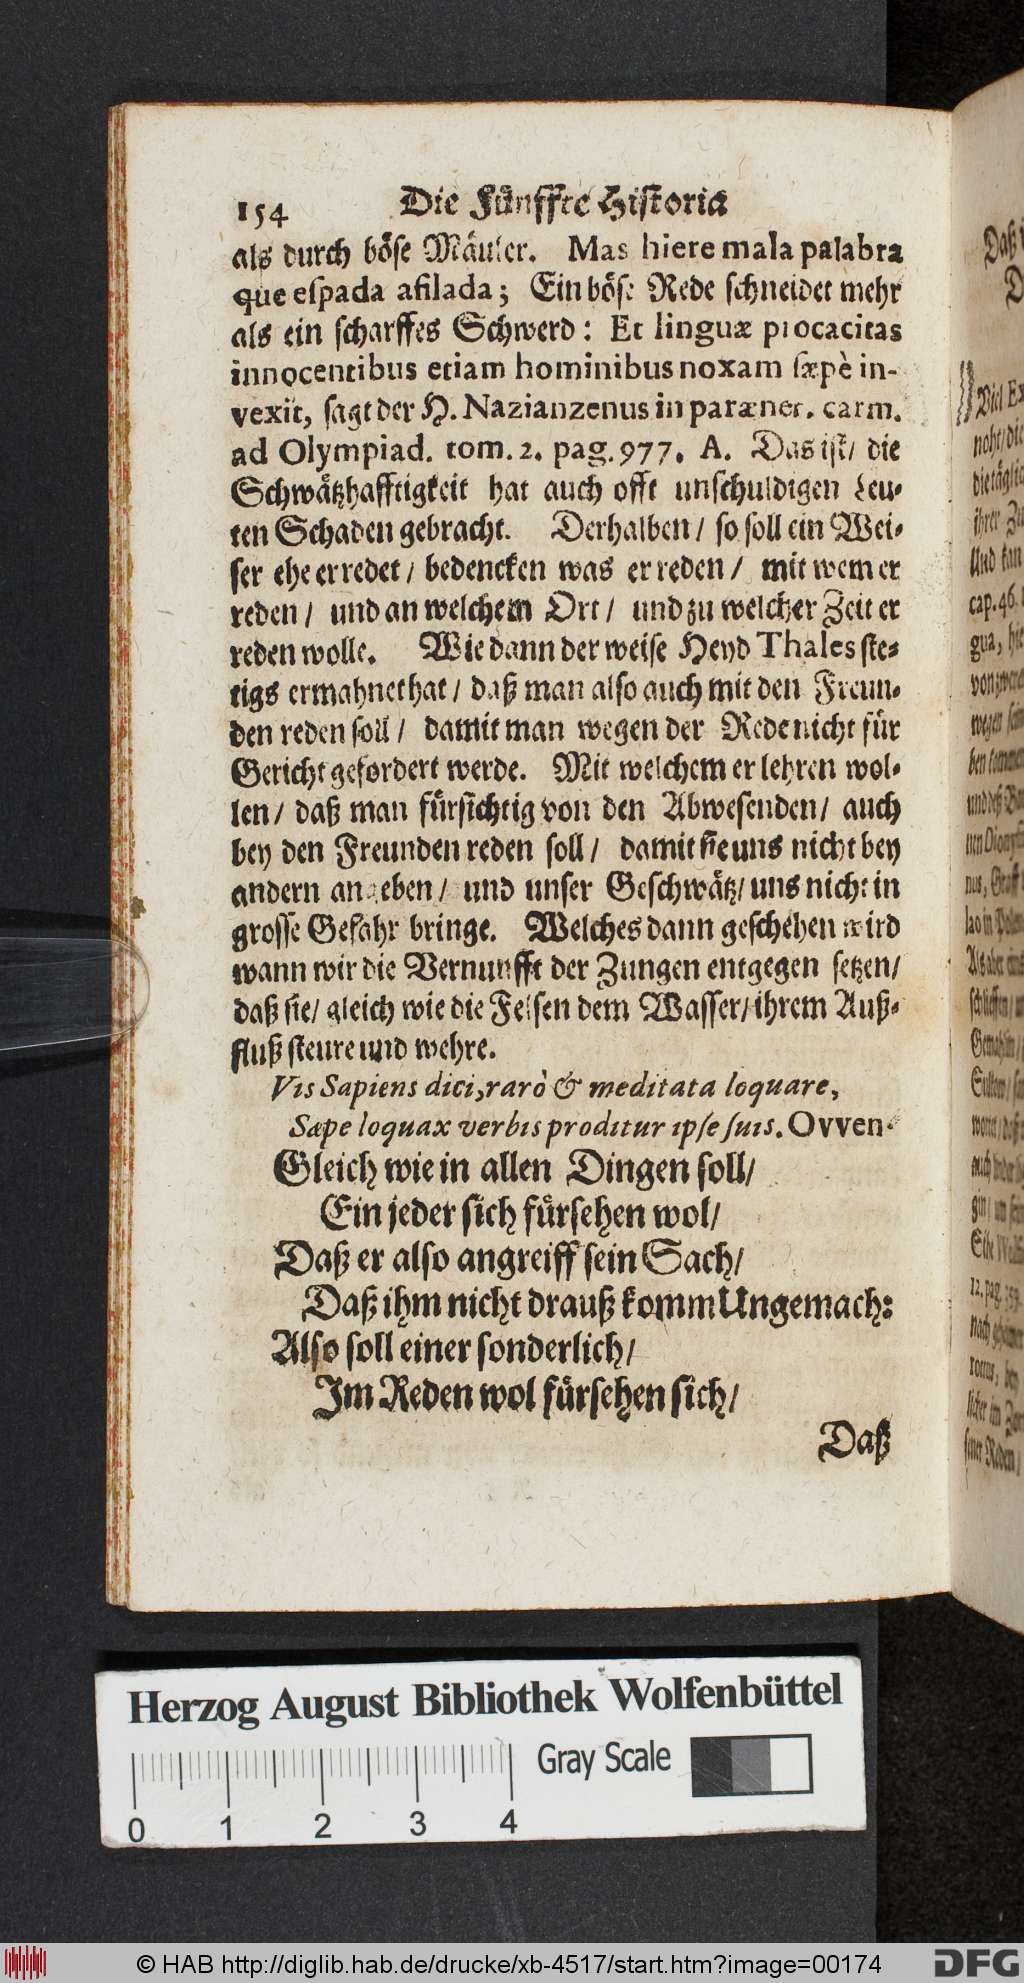 154 Die Fünffte Historia
als durch böse Mäuler. Mas hiere mala palabra
que eſpada afilada; Ein böſe Rede ſchneidet mehr
als ein ſcharffes Schwerd: Et linguæ procacitas
innocentibus etiam hominibus noxam ſæpè in-
vexit, ſagt der H. Nazianzenus in paræner. carm.
ad Olympiad. tom. 2. pag. 977. A. Das iſt/ die
Schwätzhafftigkeit hat auch offt unſchuldigen Leu-
ten Schaden gebracht. Derhalben/ ſo ſoll ein Wei-
ſer ehe er redet/ bedencken was er reden/ mit wem er
reden/ und an welchem Ort/ und zu welcher Zeit er
reden wolle. Wie dann der weiſe Heyd Thales ſte-
tigs ermahnet hat/ daß man alſo auch mit den Freun-
den reden ſoll/ damit man wegen der Rede nicht für
Gericht gefordert werde. Mit welchem er lehren wol-
len/ daß man fürſichtig von den Abweſenden/ auch
bey den Freunden reden ſoll/ damit ſie uns nicht bey
andern angeben/ und unſer Geſchwätz/ uns nicht in
groſſe Gefahr bringe. Welches dann geſchehen wird
wann wir die Vernunfft der Zungen entgegen ſetzen/
daß ſie/ gleich wie die Felſen dem Waſſer/ ihrem Auß-
fluß ſteure und wehre.
Vis Sapiens dici, rarò & meditata loquare,
Sæpe loquax verbis proditur ipſe ſuis. Ovven.
Gleich wie in allen Dingen ſoll/
Ein jeder ſich fürſehen wol/
Daß er alſo angreiff ſein Sach/
Daß ihm nicht drauß komm Ungemach:
Alſo ſoll einer ſonderlich/
Im Reden wol fürſehen ſich/
Daß
Herzog August Bibliothek Wolfenbüttel
Gray Scale
0 1 2 3 4
© HAB http://diglib.hab.de/drucke/xb-4517/start.htm?image=00174
DFG